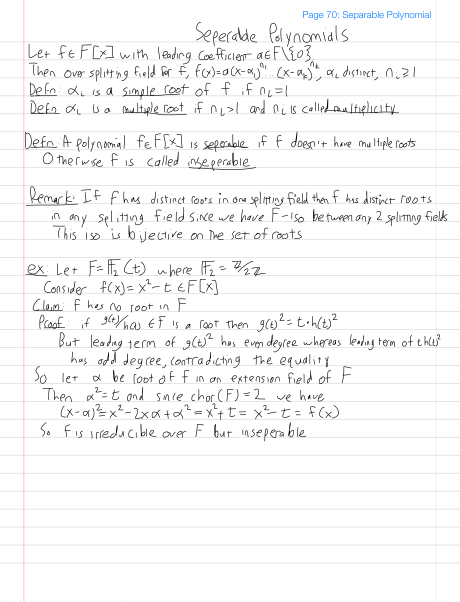 Page 70: Separable Polynomial
Seperable Polynomials
Let f∈F[x] with leading coefficient a∈F\{0}
Then over splitting field for f, f(x)=a(x-α₁)^n₁ ... (x-αₖ)^nₖ, αᵢ distinct, nᵢ≥1
Defn: αᵢ is a simple root of f if nᵢ=1
Defn αᵢ is a multiple root if nᵢ>1 and nᵢ is called multiplicity
Defn A polynomial f∈F[x] is seperable if f doesn't have multiple roots
Otherwise f is called inseperable
Remark: If f has distinct roots in one splitting field then f has distinct roots
in any splitting field since we have F-iso between any 2 splitting fields
This iso is bijective on the set of roots
ex: Let F=𝔽₂(t) where 𝔽₂=ℤ/2ℤ
Consider f(x)=x²-t∈F[x]
Claim: f has no root in F
Proof: if g(t)/h(t)∈F is a root then g(t)²=t·h(t)²
But leading term of g(t)² has even degree whereas leading term of th(t)²
has odd degree, contradicting the equality
So let α be root of f in an extension field of F
Then α²=t and since char(F)=2 we have
(x-α)²=x²-2xα+α²=x²+t=x²-t=f(x)
So f is irreducible over F but inseperable